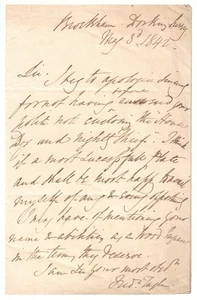 Brockham. Dorking Surry
May 3d 1842
Sir. I beg to apologize
for not having answered your
polite note enclosing the House
Dog and nightly Thief. I think
it a most successful Plate
and shall be most happy to avail
myself of any
I may have of mentioning your
name & abilities as a Wood
in the terms they deserve.
I am Sir your most obt